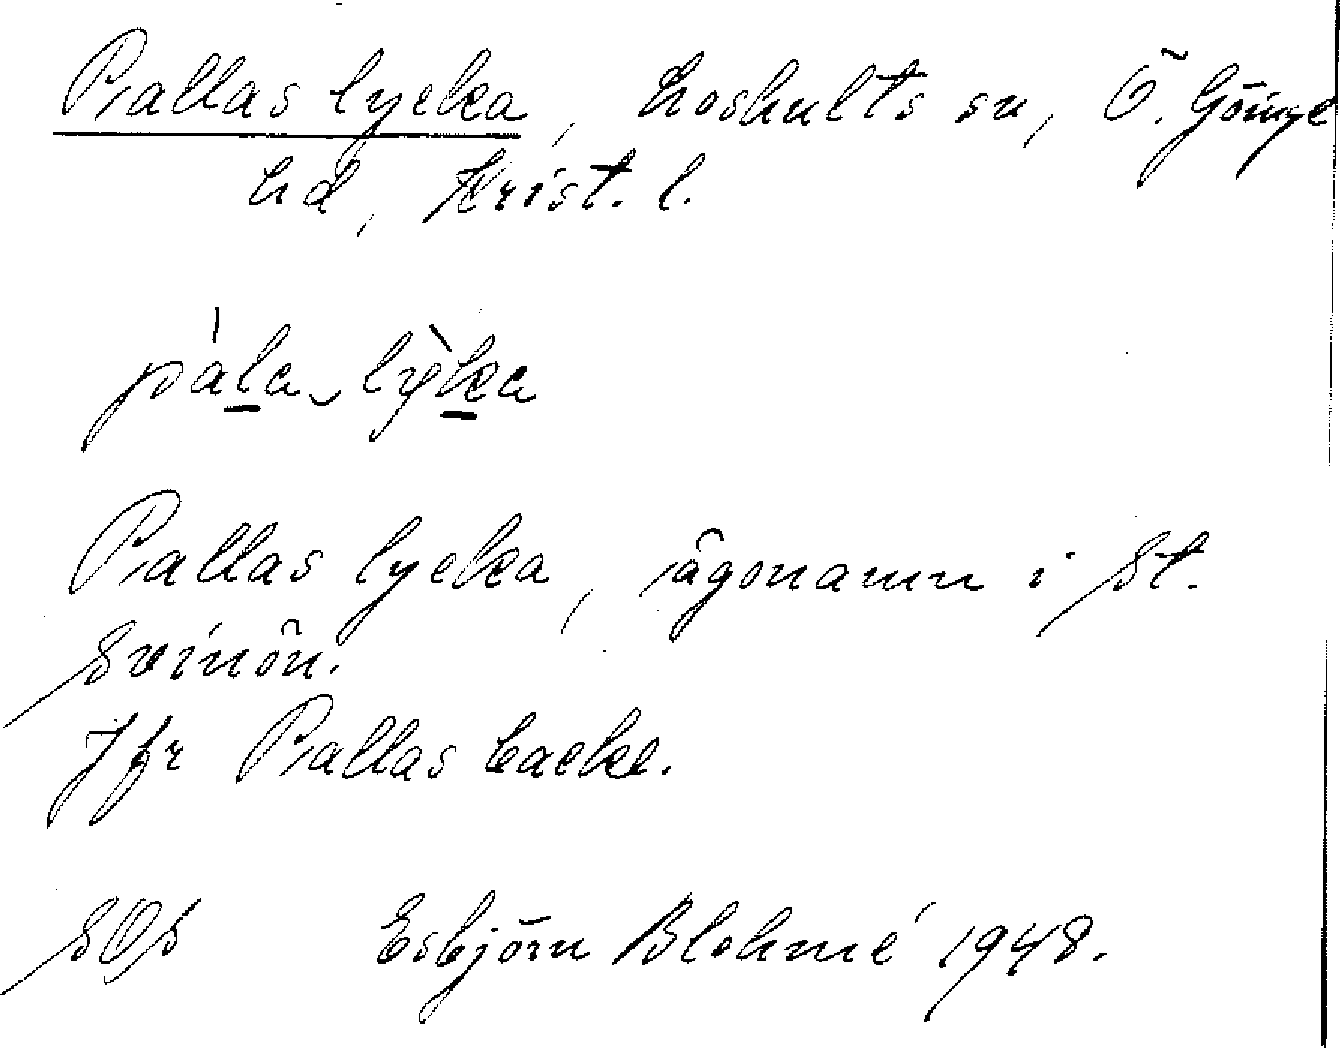 Pallas lycka, Loshults sn, Ö. Göinge
hd, Krist. l.
pàla lỳka
Pallas lycka, ägonamn i St.
Svinön.
Jfr Pallas backe.
SOS Esbjörn Blohmé 1948.